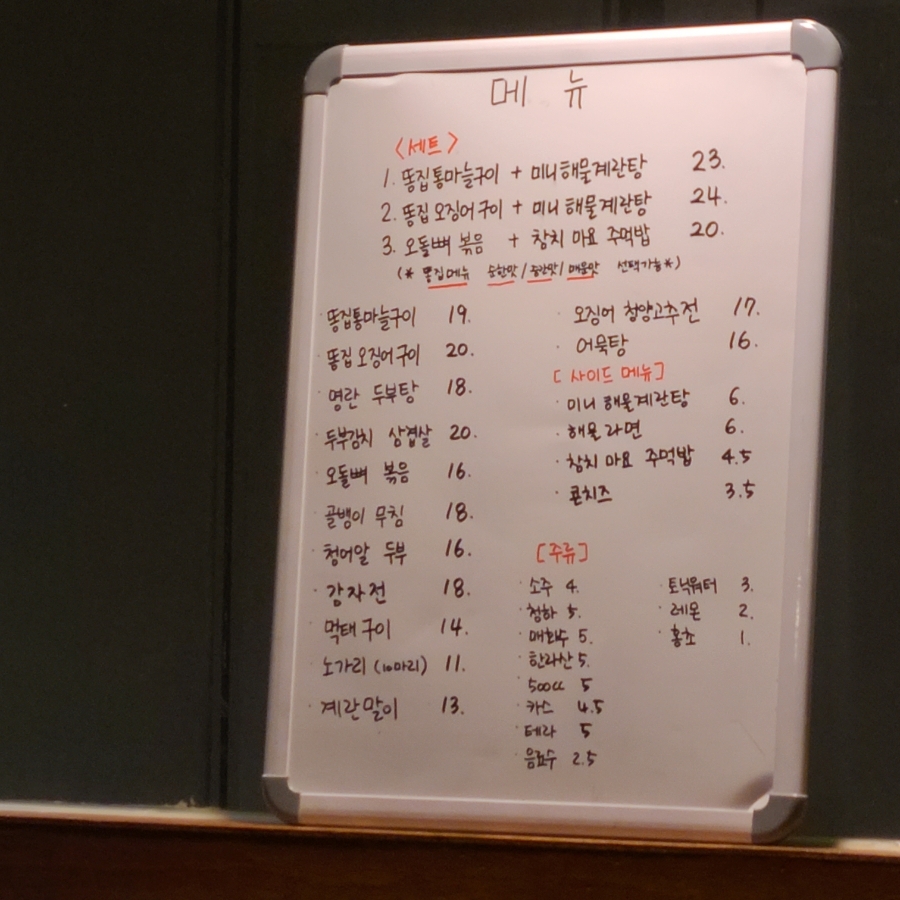 메 뉴
<세트>
1. 똥집통마늘구이 + 미니해물계란탕 23.
2. 똥집 오징어구이 + 미니 해물계란탕 24.
3. 오돌뼈 볶음 + 참치 마요 주먹밥 20.
(* 똥집메뉴 순한맛/중간맛/매운맛 선택가능*)
· 똥집통마늘구이 19.
· 똥집 오징어구이 20.
· 명란 두부탕 18.
· 두부김치 삼겹살 20.
· 오돌뼈 볶음 16.
· 골뱅이 무침 18.
· 청어알 두부 16.
· 감자전 18.
· 먹태구이 14.
· 노가리 (10마리) 11.
· 계란말이 13.
· 오징어 청양고추전 17.
· 어묵탕 16.
[사이드 메뉴]
· 미니 해물계란탕 6.
· 해물라면 6.
· 참치 마요 주먹밥 4.5
· 콘치즈 3.5
[주류]
· 소주 4.
· 청하 5.
· 매화수 5.
· 한라산 5.
· 500cc 5
· 카스 4.5
· 테라 5
· 음료수 2.5
· 토닉워터 3.
· 레몬 2.
· 홍초 1.